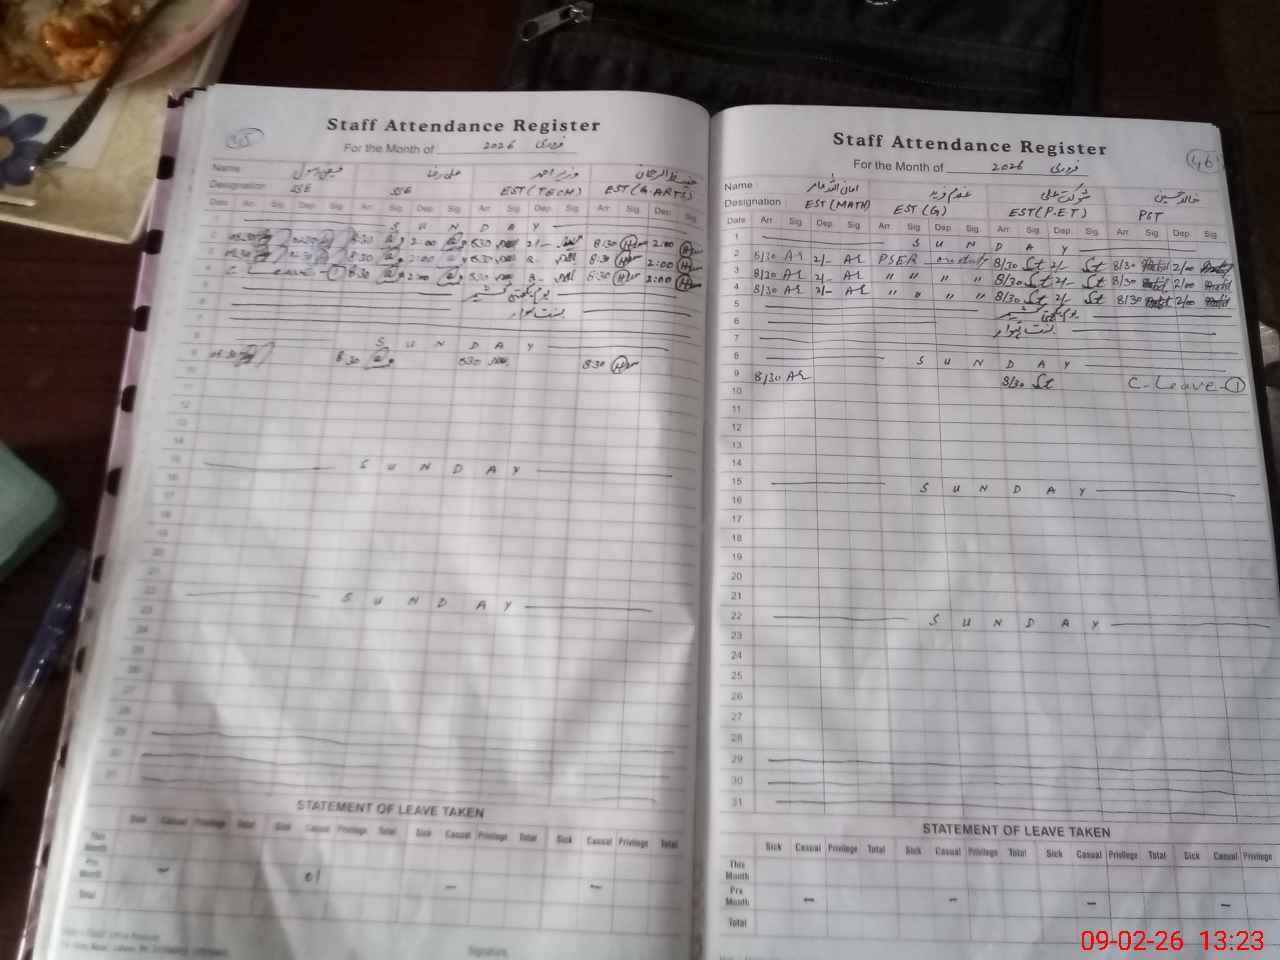 45
Staff Attendance Register
For the Month of فروری 2026
Name فیض رسول علی رضا وزیر احمد حفیظ الرحمان
Designation SSE SSE EST (TECH) EST (G.ARTS)
Date Arr. Sig. Dep. Sig. Arr. Sig. Dep. Sig. Arr. Sig. Dep. Sig. Arr. Sig. Dep. Sig.
S U N D A Y
2 8:30 2:00 8:30 2/- 8:30 2:00
3 8:30 2:00 8:30 2:00
4 C Leave-① 8:30 2:00 8:30 8:30 2:00
5 یوم یکجہتی کشمیر
6 بسنت تہوار
7
8 S U N D A Y
9 8:30 8:30 8:30 8:30
10
11
12
13
14
15 S U N D A Y
16
17
18
19
20
21
22 S U N D A Y
23
24
25
26
27
28
29
30
31
STATEMENT OF LEAVE TAKEN
Sick Casual Privilege Total Sick Casual Privilege Total Sick Casual Privilege Total Sick Casual Privilege Total
This Month
Pre Month – 01 – –
Total
Signature
46
Staff Attendance Register
For the Month of فروری 2026
Name امان اللہ عامر غلام فرید شوکت علی خالد حسین
Designation EST (MATH) EST (G) EST (P.E.T) PST
Date Arr. Sig. Dep Sig. Arr. Sig. Dep Sig. Arr. Sig. Dep. Sig. Arr. Sig. Dep Sig.
1 S U N D A Y
2 8/30 Ar 2/- Ar PSER on duty 8/30 St 2/- St 8/30 2/00
3 8/30 Ar 2/- Ar " " " " 8/30 St 2/- St 8/30 2/00
4 8/30 Ar 2/- Ar " " " " 8/30 St 2/- St 8/30 2/00
5 یوم یکجہتی کشمیر
6 بسنت تہوار
7
8 S U N D A Y
9 8/30 Ar 8/30 St C-Leave-①
10
11
12
13
14
15 S U N D A Y
16
17
18
19
20
21
22 S U N D A Y
23
24
25
26
27
28
29
30
31
STATEMENT OF LEAVE TAKEN
Sick Casual Privilege Total Sick Casual Privilege Total Sick Casual Privilege Total Sick Casual Privilege
This Month
Pre Month – – – –
Total
09-02-26 13:23